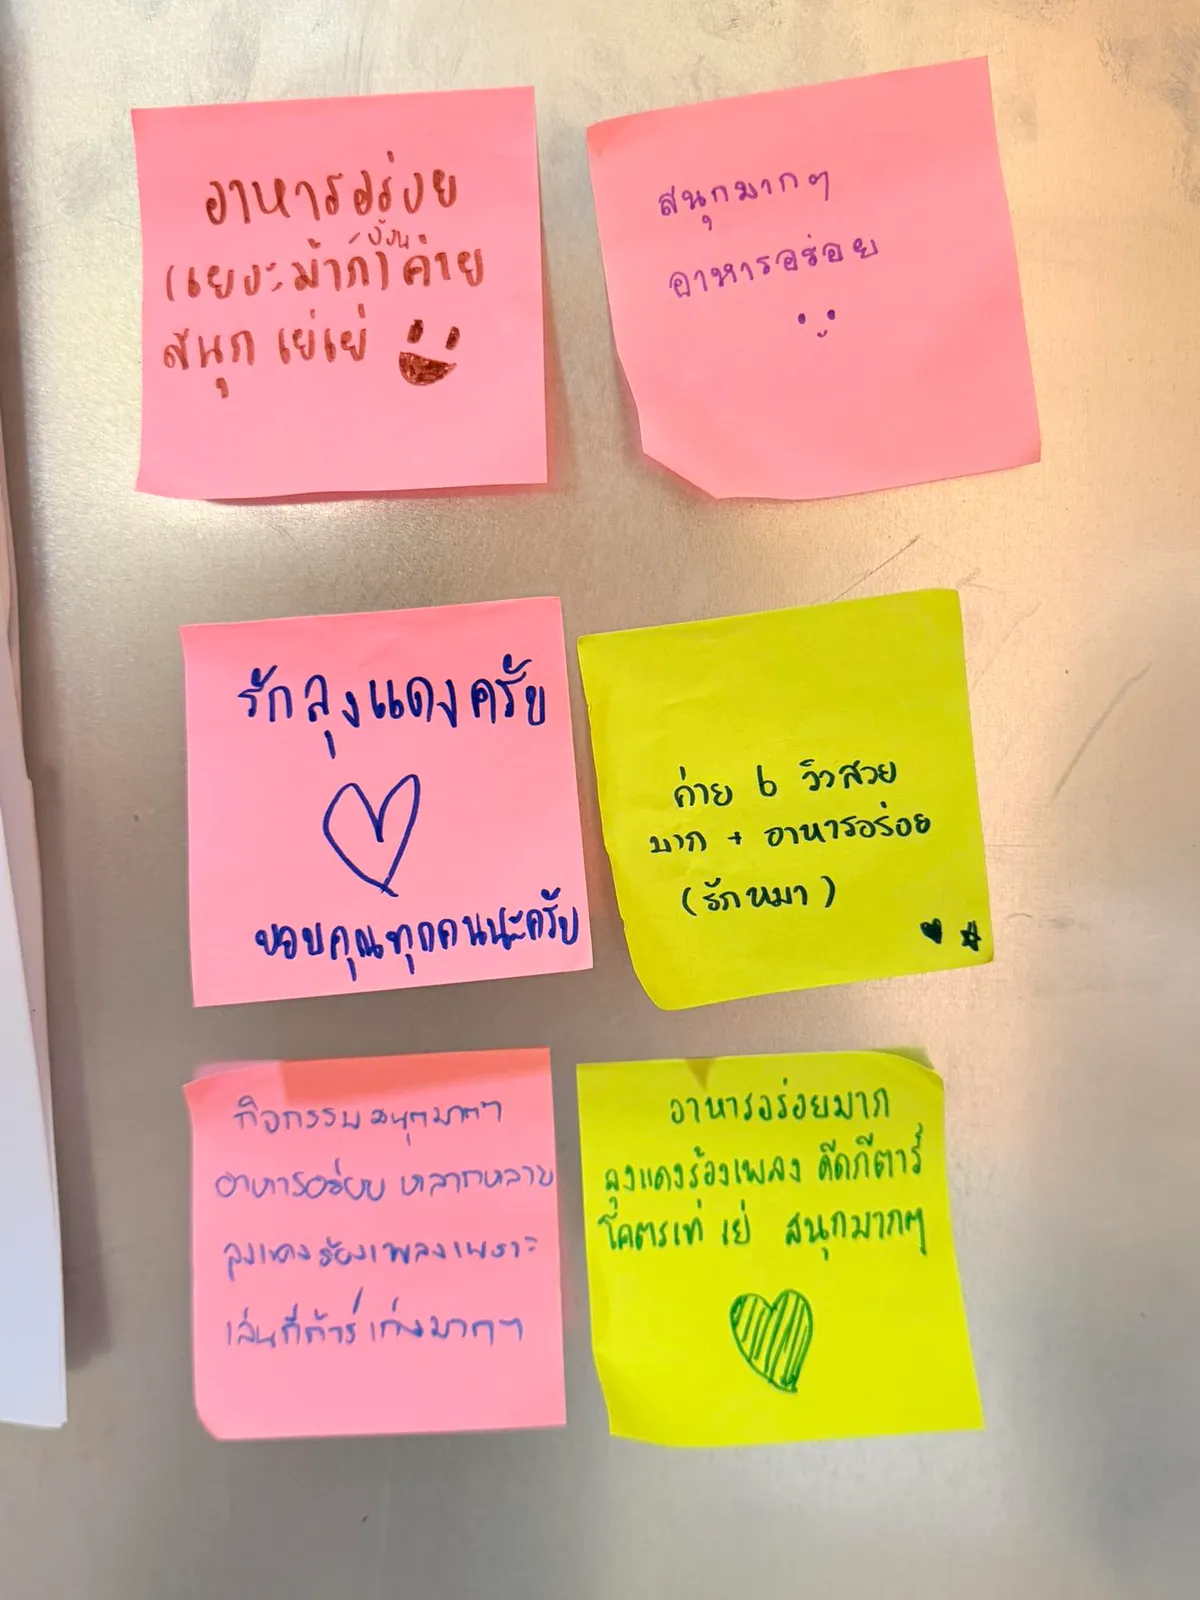 อาหารอร่อย
(เยอะม้าก) ค่าย
สนุก เย่เย่
สนุกมากๆ
อาหารอร่อย
รักลุงแดงครับ
ขอบคุณทุกคนนะครับ
ค่าย 6 วิวสวย
มาก + อาหารอร่อย
(รักหมา)
กิจกรรมสนุกมากๆ
อาหารอร่อย หลากหลาย
ลุงแดงร้องเพลงเพราะ
เล่นกีต้าร์เก่งมากๆ
อาหารอร่อยมาก
ลุงแดงร้องเพลง ดีดกีตาร์
โคตรเท่ เย่ สนุกมากๆ